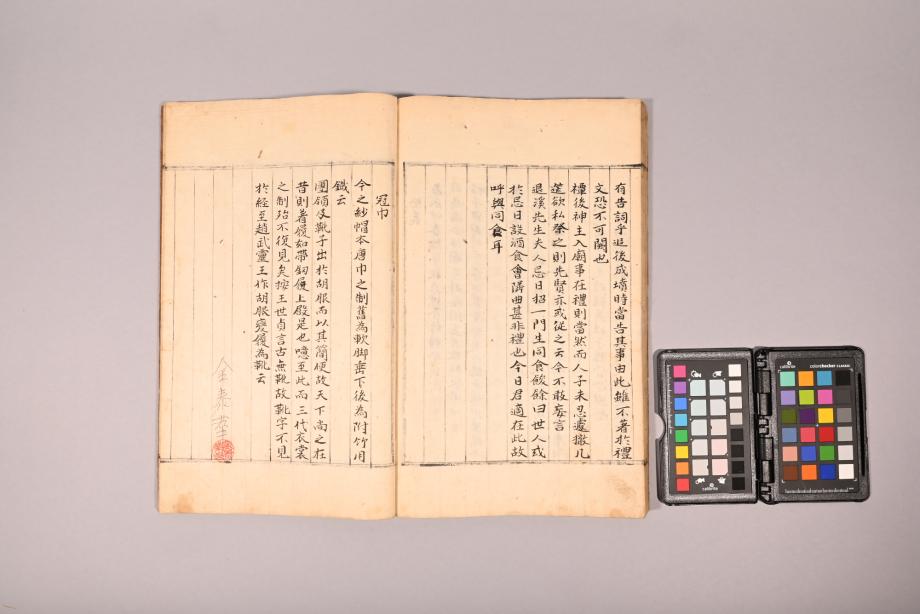 有告詞乎返後成墳時當告其事由此雖不著於禮
文恐不可闕也
禫後神主入廟事在禮則當然而人子未忍遽撤几
筵欲私祭之則先賢亦或從之云今不敢妄言
退溪先生夫人忌日招一門生同食餕餘曰世人或
於忌日設酒食會隣曲甚非禮也今日君適在此故
呼與同食耳
冠巾
今之紗帽本唐巾之制舊為軟脚垂下後為附竹用
鐵云
團領及靴子出於胡服而以其簡便故天下尚之在
昔則著履如帶鉤履上殿是也噫至此而三代衣裳
之制殆不復見矣按王世貞言古無靴故靴字不見
於経至趙武靈王作胡服變履為靴云
calibrite
calibrite
colorchecker CLASSIC